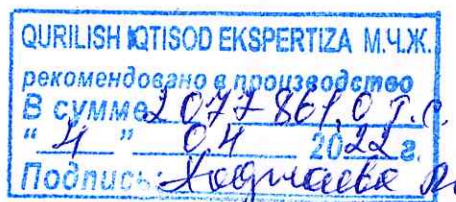 QURILISH IQTISOD EKSPERTIZA М.Ч.Ж.
рекомендовано в производство
В сумме 2 077 861,0 т.с.
"4" 04 2022г.
Подпись: Ходжаева